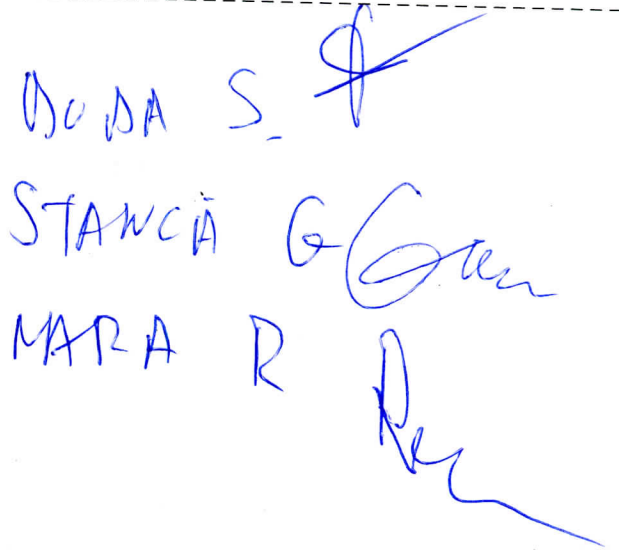 DODA S.
STANCĂ G
MARA R